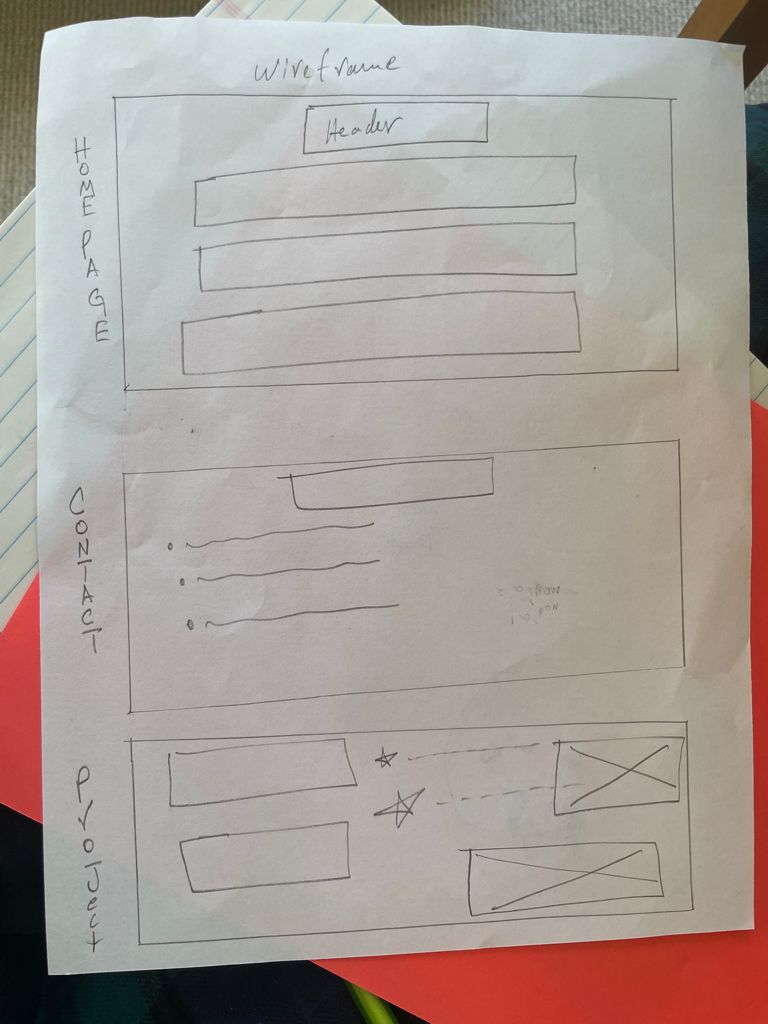 Wireframe
HOME PAGE
Header
CONTACT
Project